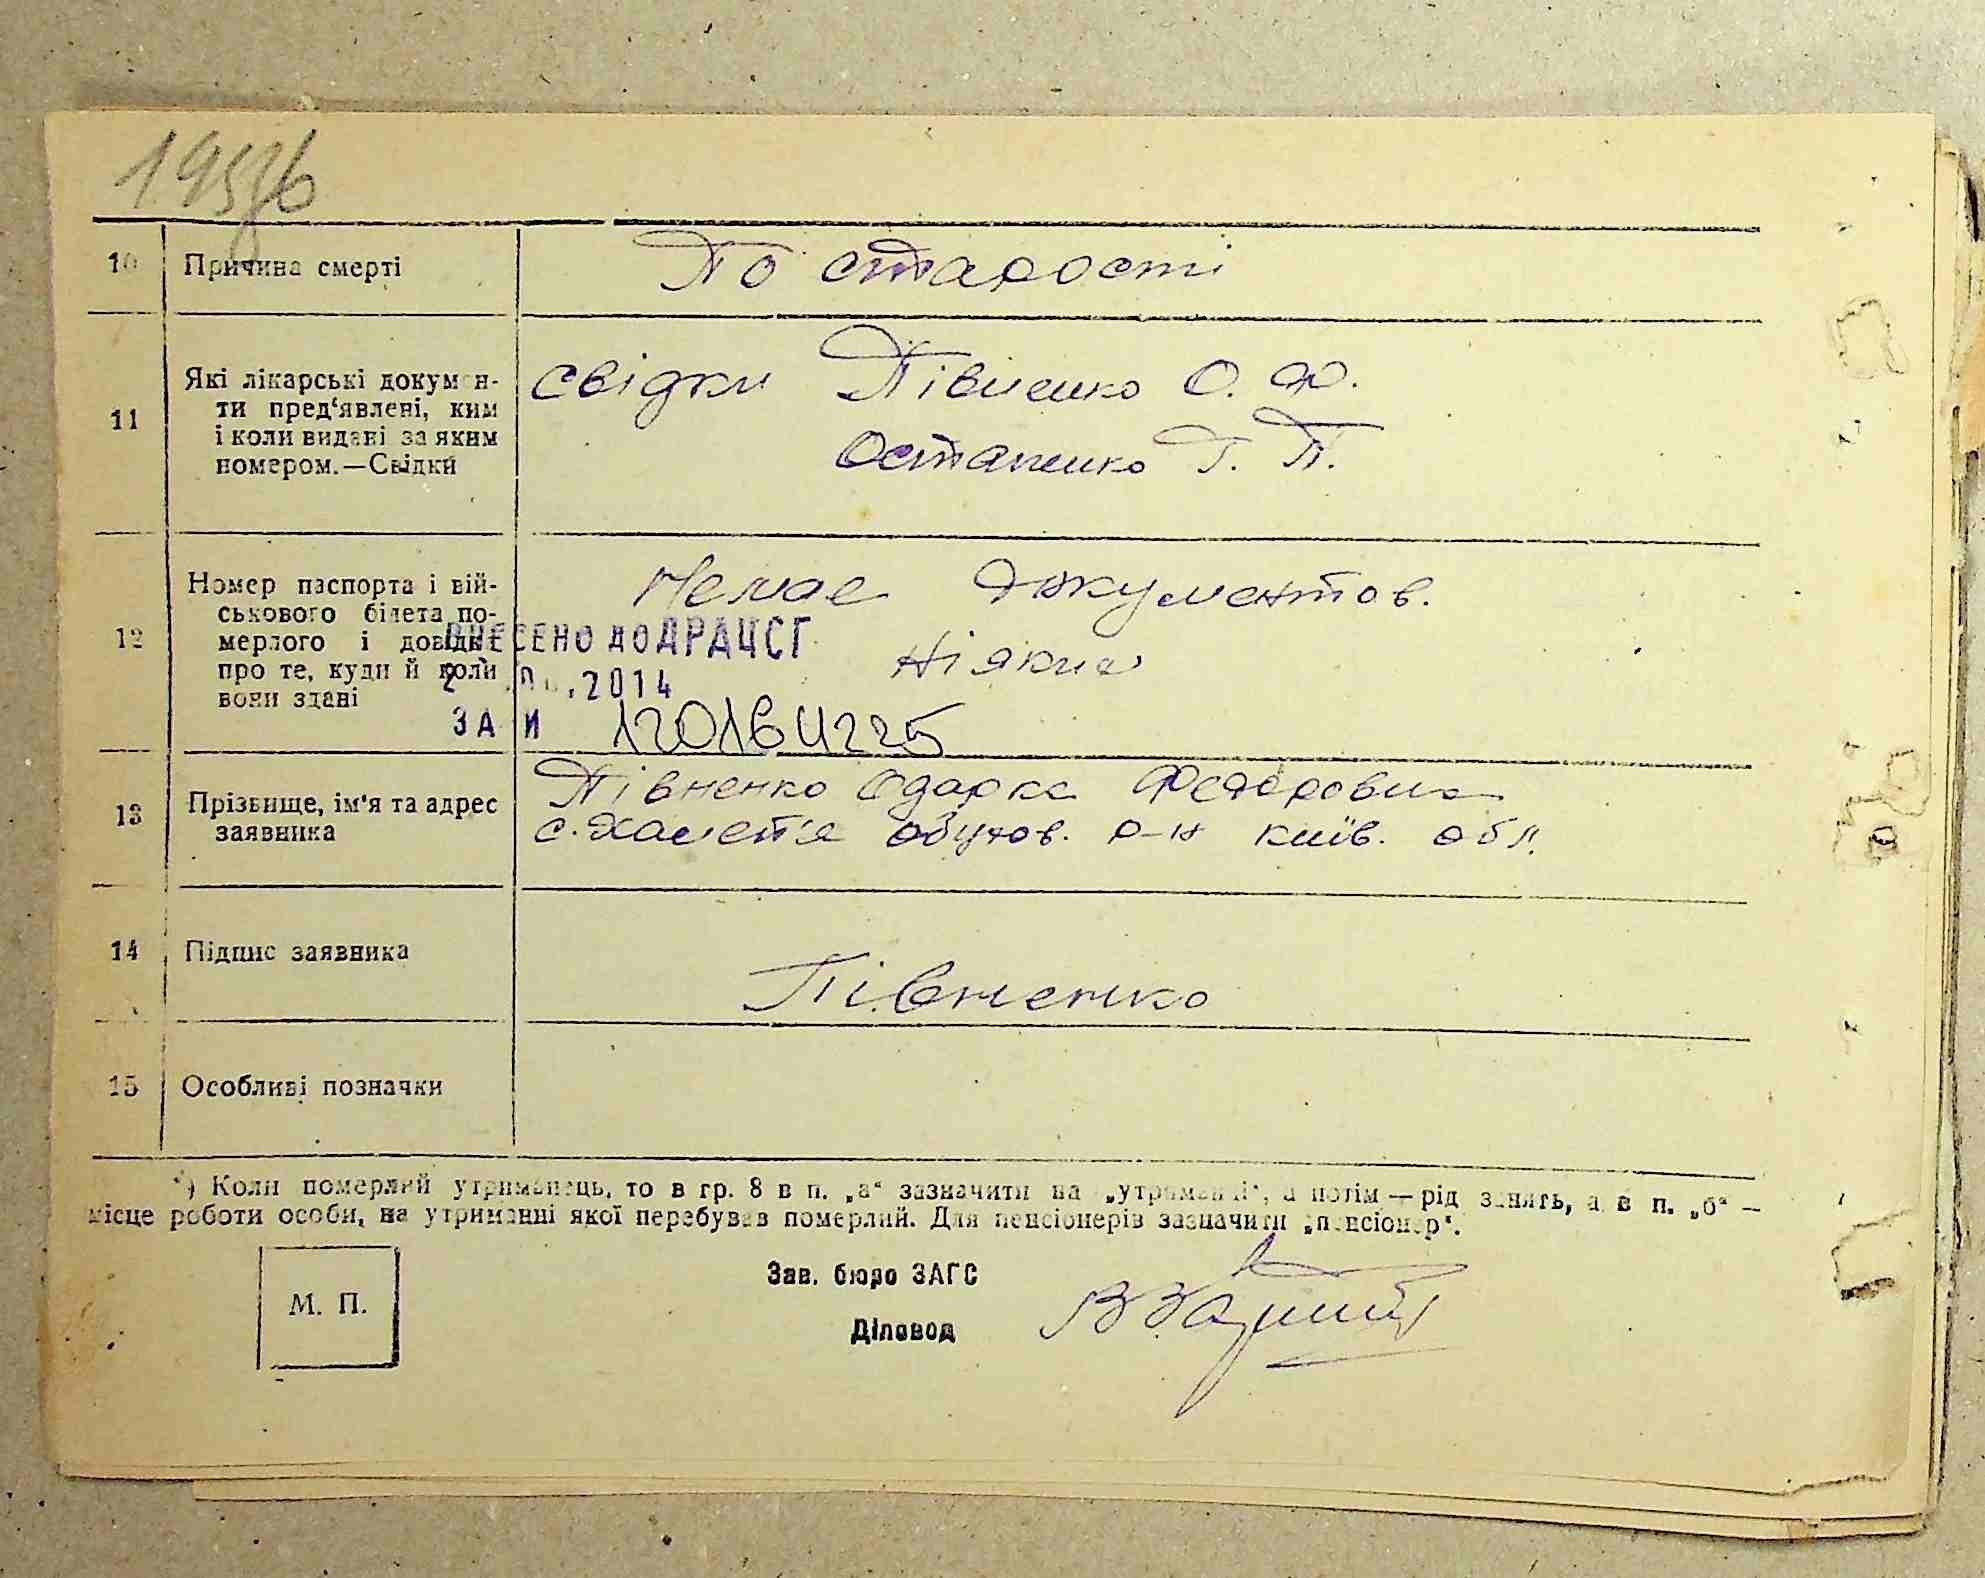 10 Причина смерті По старості
11 Які лікарські докумен-
ти пред'явлені, ким
і коли видані за яким
номером.—Свідки
свідки Півненко О. Ф.
Остапенко Г. П.
12 Номер паспорта і вій-
ськового білета по-
мерлого і довідка
про те, куди й коли
вони здані
Немає документов.
ніяких
ВНЕСЕНО ДО ДРАЦСГ
2014
ЗА И 120164225
13 Прізвище, ім'я та адрес
заявника
Півненко Одарка Федоровна
с. Халеп'я обухов. р-н київ. обл.
14 Підпис заявника
Півненко
15 Особливі позначки
*) Коли померлий утриманець, то в гр. 8 в п. „а“ зазначити на „утриманні“, а потім — рід занять, а в п. „б“ —
місце роботи особи, на утриманні якої перебував померлий. Для пенсіонерів зазначити „пенсіонер“.
М. П.
Зав. бюро ЗАГС
Діловод